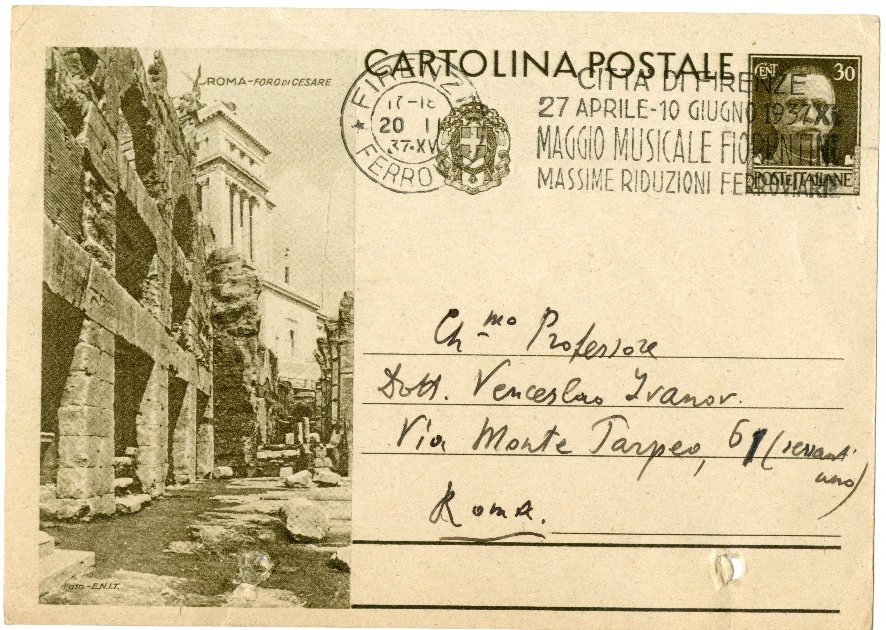 CARTOLINA POSTALE
ROMA-FORO DI CESARE
CENT 30
FIRENZE
17-18
20 II
37·XV
FERROV
CITTÀ DI FIRENZE
27 APRILE-10 GIUGNO 1937 XV
MAGGIO MUSICALE FIORENTINO
MASSIME RIDUZIONI FERROVIARIE
POSTE ITALIANE
Ch.mo Professore
Dott. Venceslao Ivanov.
Via Monte Tarpeo, 61 (sessant'
uno)
Roma.
FOTO-E.N.I.T.